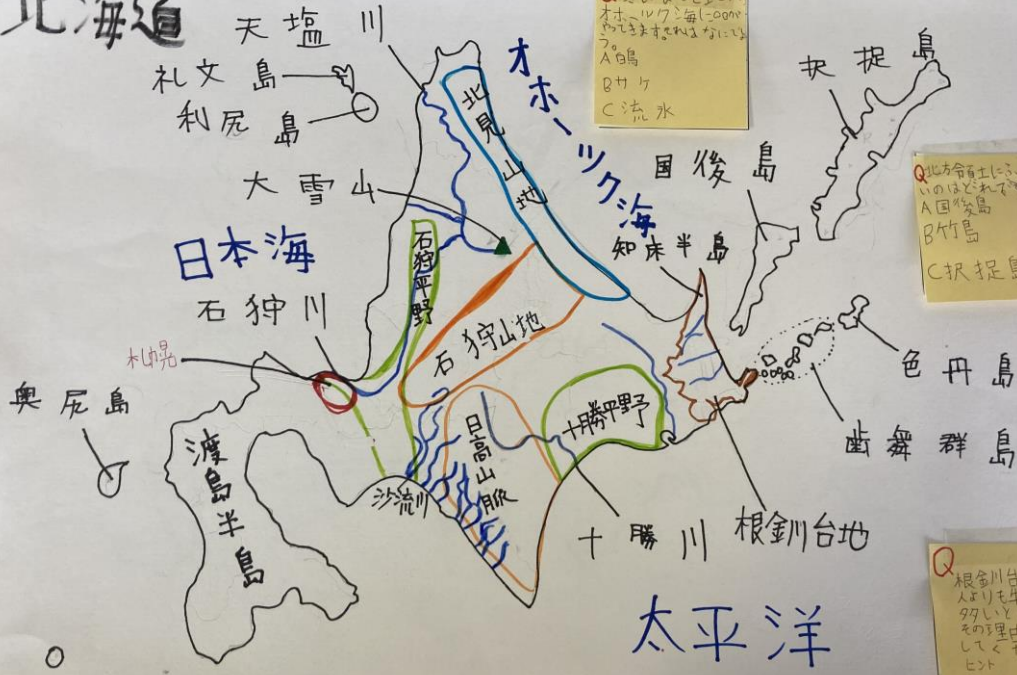 北海道
天塩川
礼文島
利尻島
大雪山
日本海
石狩川
札幌
奥尻島
渡島半島
北見山地
オホーツク海
石狩平野
石狩山地
日高山脈
沙流川
十勝平野
十勝川
根釧台地
太平洋
知床半島
国後島
択捉島
色丹島
歯舞群島
オホーツク海に○○が
やってきます。それはなにでしょ
う。
A白鳥
Bサケ
C流氷
Q北方領土に
いのはどれで
A国後島
B竹島
C択捉島
Q
根釧川台
人よりも牛
多いと
その理由
してく
ヒント